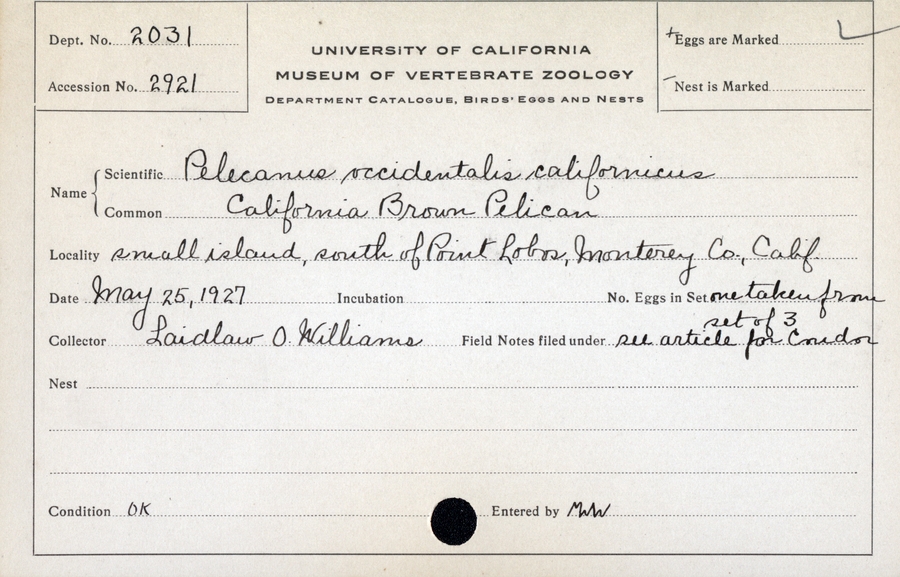 Dept. No. 2031
Accession No. 2921
UNIVERSITY OF CALIFORNIA
MUSEUM OF VERTEBRATE ZOOLOGY
DEPARTMENT CATALOGUE, BIRDS' EGGS AND NESTS
+Eggs are Marked
-Nest is Marked
Name
Scientific Pelecanus occidentalis californicus
Common California Brown Pelican
Locality small island, south of Point Lobos, Monterey Co., Calif.
Date May 25, 1927 Incubation No. Eggs in Set one taken from
set of 3
Collector Laidlaw O. Williams Field Notes filed under see article for Condor
Nest
Condition OK Entered by MWW